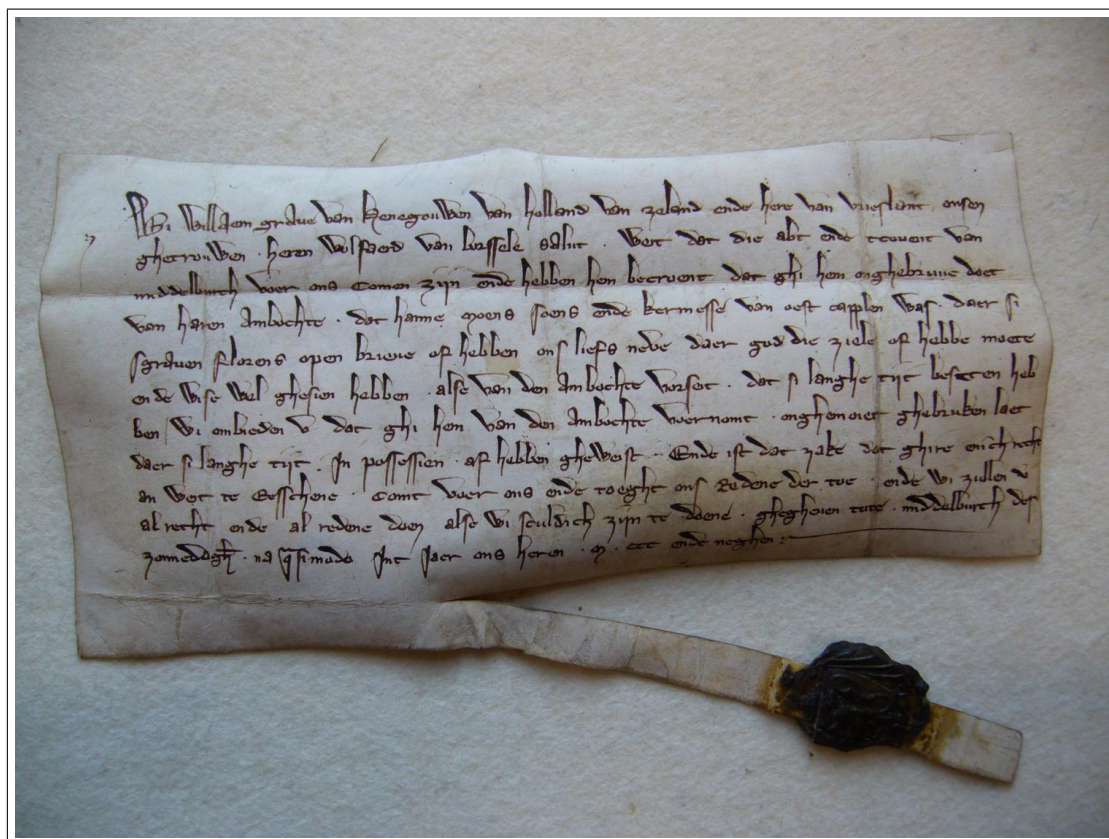 Wi Willaem graue van henegouwen van holland van zeland ende here van vrieslant onsen
ghetrouwen . heren Wolfaerd van borssele salut . Wet dat die abt ende tcouent van
middelburch voer ons comen zijn ende hebben hen becroent dat ghi hem onghebruuc doet
van haren ambochte . dat hanne moens soens ende kermesse van oest capplen was . daer si
sgrauen florens open brieue of hebben ons liefs neve daer god die ziele of hebbe moete
ende wise wel ghesien hebben . alse van den ambochte vorseit . dat si langhe tijt beseten heb
ben / wi ombieden v dat ghi hem van den ambochte voernomt . onghemoiet ghebruken laet
daer si langhe tijt . In possessien . af hebben gheweist . Ende ist dat zake dat ghire enich recht
an wet te Eesschene . comt voer ons ende toeght ons Redene der toe . ende wi zullen v
al recht ende al redene doen alse wi sculdich zijn te doene . ghegheuen tote . middelburch des
zonnedagh . na qsimodo Int Jaer ons heren . m . ccc ende neghen :